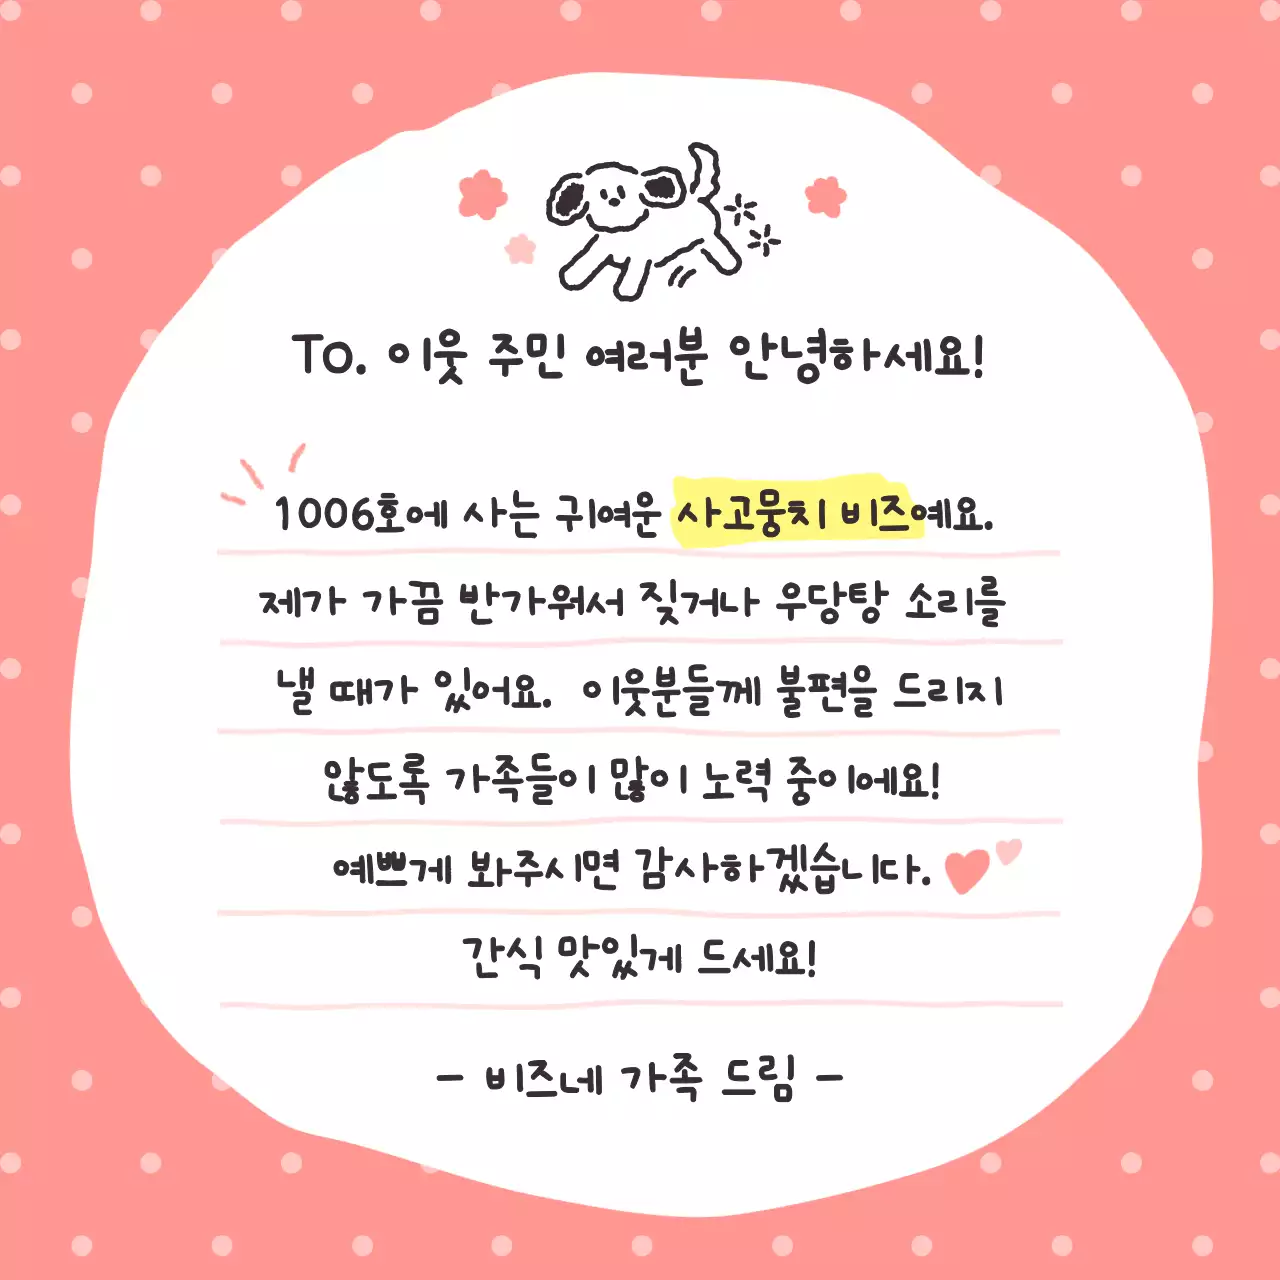 To. 이웃 주민 여러분 안녕하세요!
1006호에 사는 귀여운 사고뭉치 비즈예요.
제가 가끔 반가워서 짖거나 우당탕 소리를
낼 때가 있어요. 이웃분들께 불편을 드리지
않도록 가족들이 많이 노력 중이에요!
예쁘게 봐주시면 감사하겠습니다.
간식 맛있게 드세요!
- 비즈네 가족 드림 -